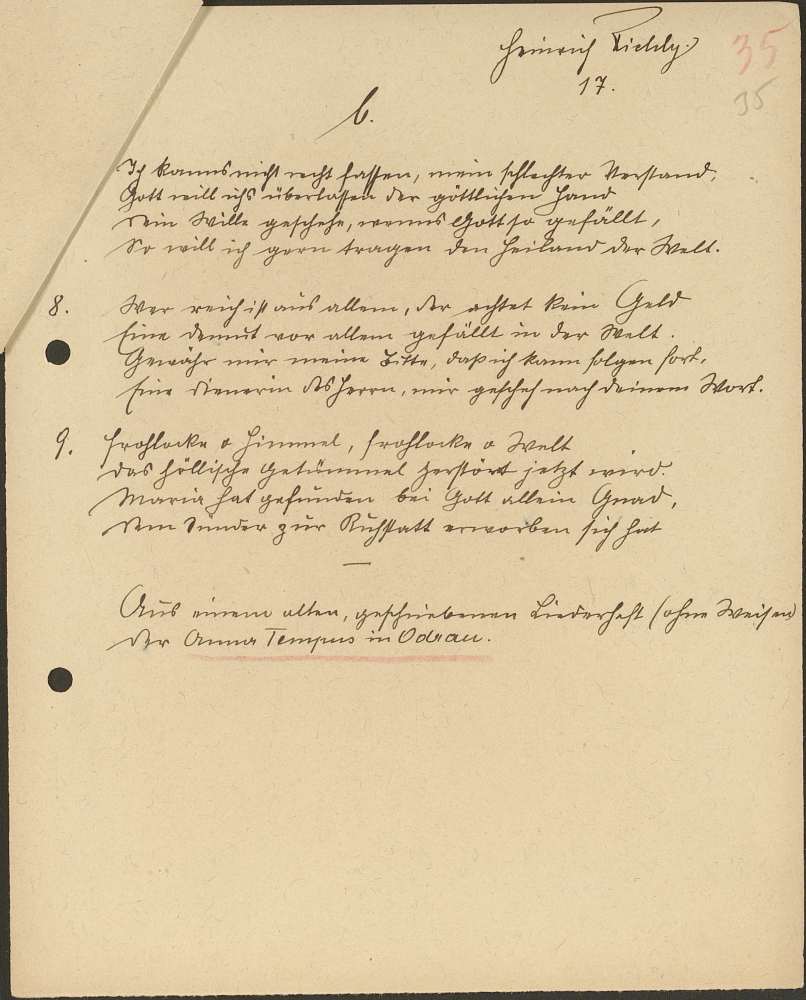 Heinrich
35
17.
35
b.
Ich kanns nicht recht fassen, mein schlechter Verstand,
Gott will ichs überlassen der göttlichen Hand
Dein Wille geschehe, wenns Gott so gefällt,
So will ich gern tragen den Heiland der Welt.
8. Wer reich ist aus allem, der achtet kein Geld
Eine Demut vor allem gefällt in der Welt.
Gewähr mir meine Bitte, daß ich kann folgen fort,
Eine Dienerin des Herrn, mir gescheh nach deinem Wort.
9. Frohlocke o Himmel, frohlocke o Welt
Das höllische Getümmel zerstört jetzt wird.
Maria hat gefunden bei Gott allein Gnad,
Dem Sünder zur Ruhstatt erworben sich hat
Aus einem alten, geschriebenen Liederheft (ohne Weisen)
der Anna Tempus in Odrau.